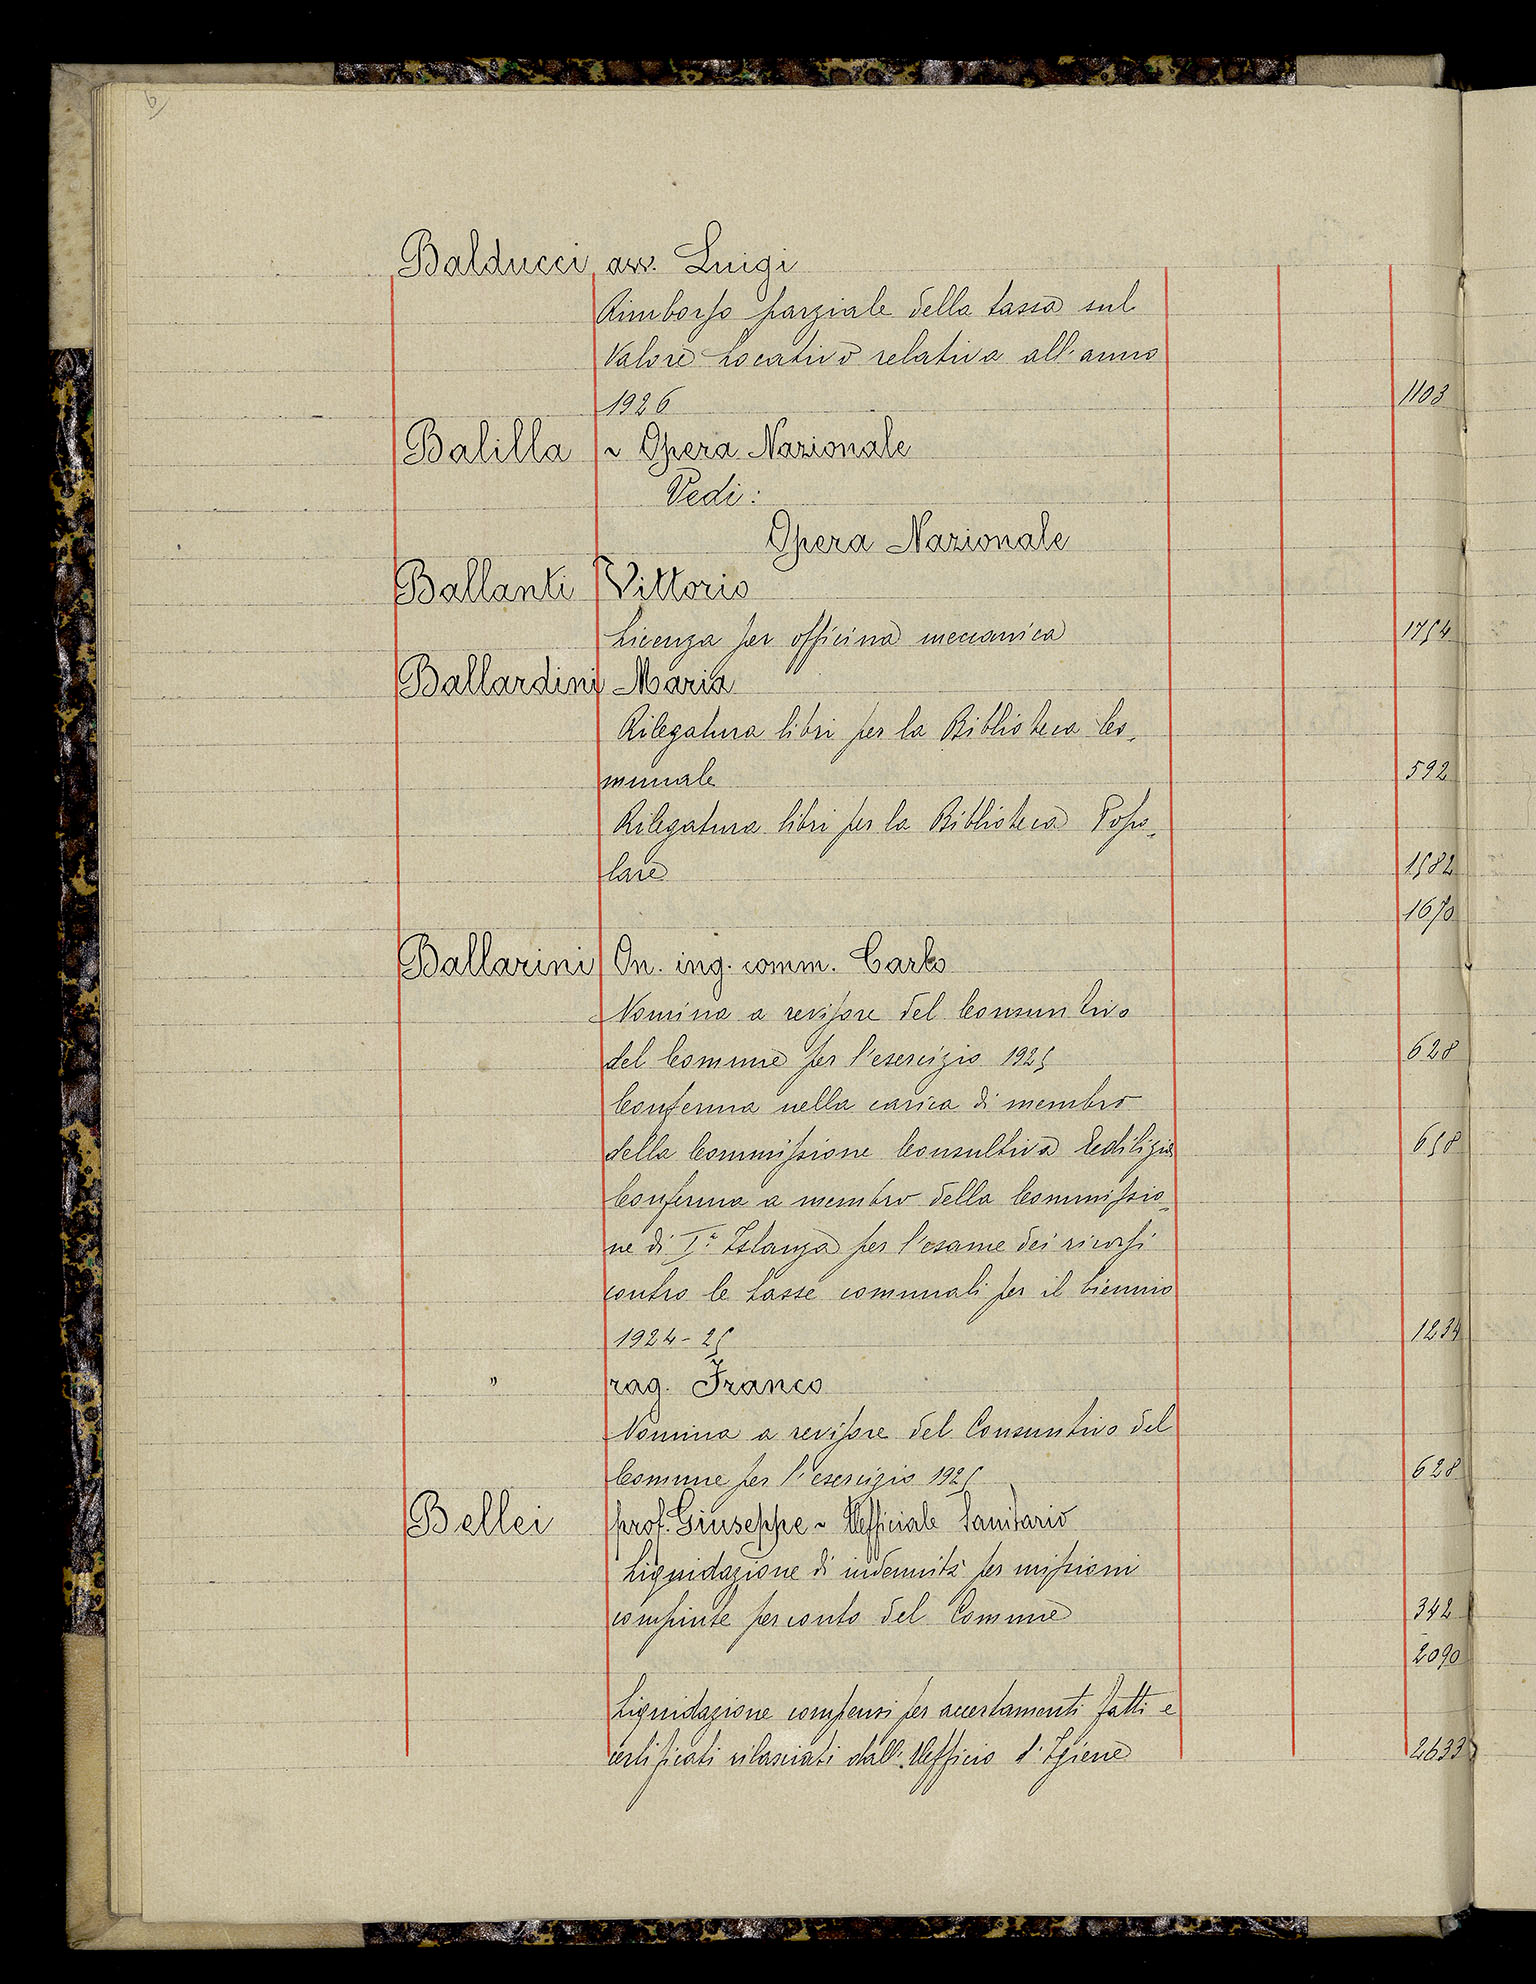 6
Balducci avv. Luigi
Rimborso parziale della tassa sul
Valore Locativo relativa all'anno
1926 1103
Balilla ~ Opera Nazionale
Vedi:
Opera Nazionale
Ballanti Vittorio
Licenza per officina meccanica 1754
Ballardini Maria
Rilegatura libri per la Biblioteca Co-
munale 592
Rilegatura libri per la Biblioteca Popo-
lare 1582
1670
Ballarini On. ing. comm. Carlo
Nomina a revisore del Consuntivo
del Comune per l'esercizio 1925 628
Conferma nella carica di membro
della Commissione Consultiva Edilizia 658
Conferma a membro della Commissio-
ne di Iª Istanza per l'esame dei ricorsi
contro le tasse comunali per il biennio
1924-25 1234
" rag. Franco
Nomina a revisore del Consuntivo del
Comune per l'esercizio 1925 628
Bellei prof. Giuseppe ~ Ufficiale Sanitario
Liquidazione di indennità per missioni
compiute per conto del Comune 342
2090
Liquidazione compensi per accertamenti fatti e
certificati rilasciati dall'Ufficio d'Igiene 2633